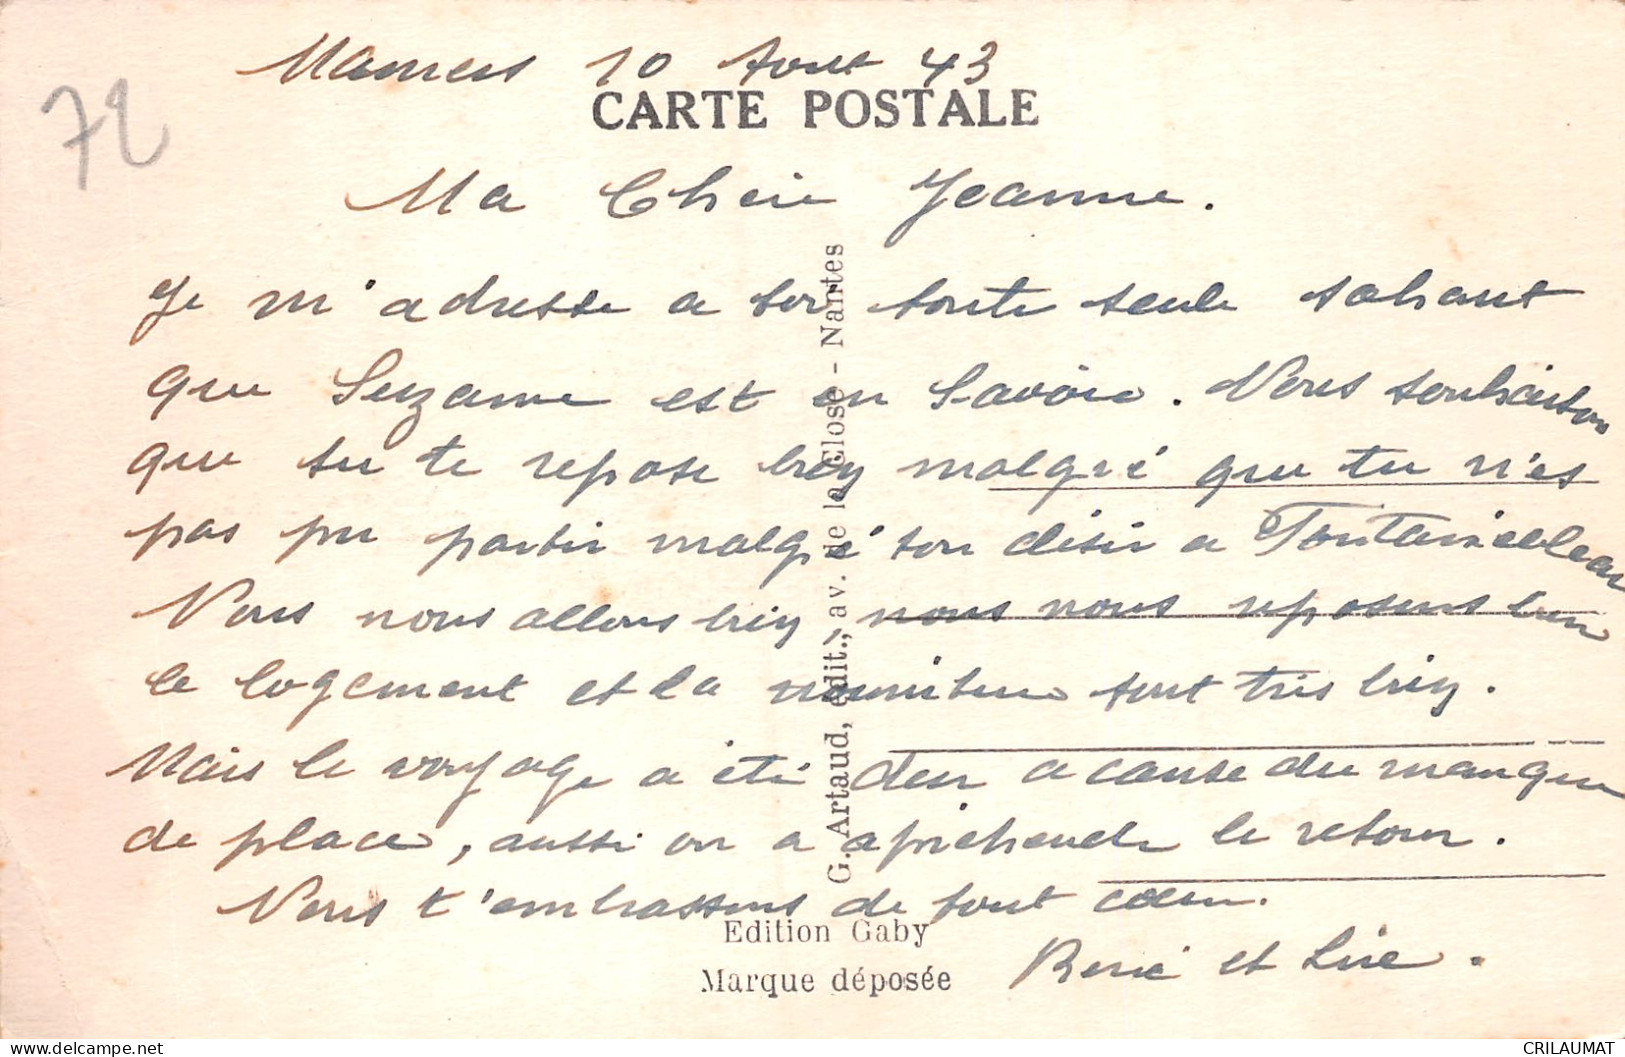 Mamers 10 Aout 43
72
CARTE POSTALE
Ma Cherie Jeanne.
Je m'adresse a toi toute seule sachant
que Suzanne est en Savoie. Nous souhaitons
que tu te repose bien malgré que tu n'es
pas pu partir malgré ton désir a Fontainebleau
Nous nous allons bien, nous nous reposons bien
le logement et la nourriture sont très bien.
Mais le voyage a été dur a cause du manque
de place, aussi on a apréhende le retour.
Nous t'embrassons de tout cœur.
René et
G. Artaud, édit., av. de la Close - Nantes
Edition Gaby
Marque déposée
CRILAUMAT